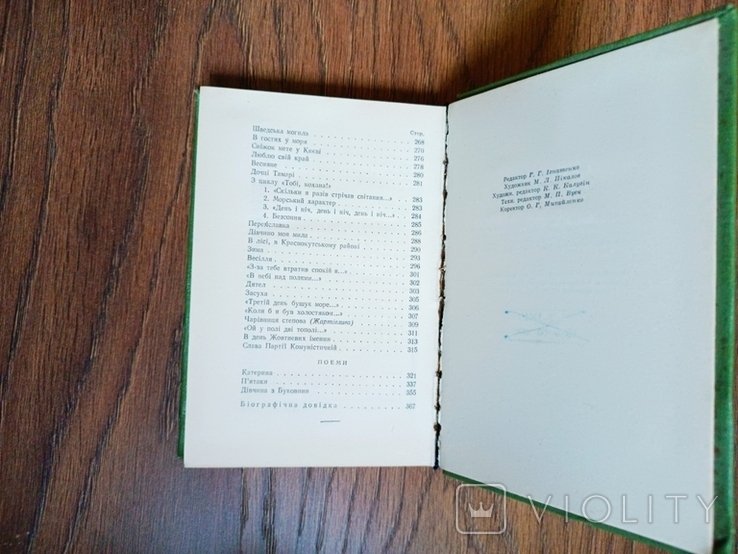 Стор.
Шведська могила 268
В гостях у моря 270
Сніжок мете у Києві 276
Люблю свій край 278
Весняне 280
Дочці Тамарі 281
З циклу «Тобі, кохана!»
1. «Скільки я разів стрічав світання...» 283
2. Морський характер 283
3. «День і ніч, день і ніч, день і ніч...» 284
4. Безсоння 285
Переяславка 286
Дівчино моя мила 288
В лісі, в Краснокутському районі 290
Зима 293
Весілля 296
«З-за тебе втратив спокій я...» 301
«В небі над полями...» 302
Дятел 303
Засуха 305
«Третій день бушує море...» 306
«Коли б я був холостяком...» 307
Чарівниця степова (Жартівлива) 309
«Ой у полі дві тополі...» 311
В день Жовтневих іменин 313
Слава Партії Комуністичній 315
ПОЕМИ
Катерина 321
П'ятаки 337
Дівчина з Буковини 355
Біографічна довідка 367
Редактор Г. Г.
Художник М. Л.
Художн. редактор К. К. Калугін
Техн. редактор М. П.
Коректор О. Г. Михайленко
VIOLITY